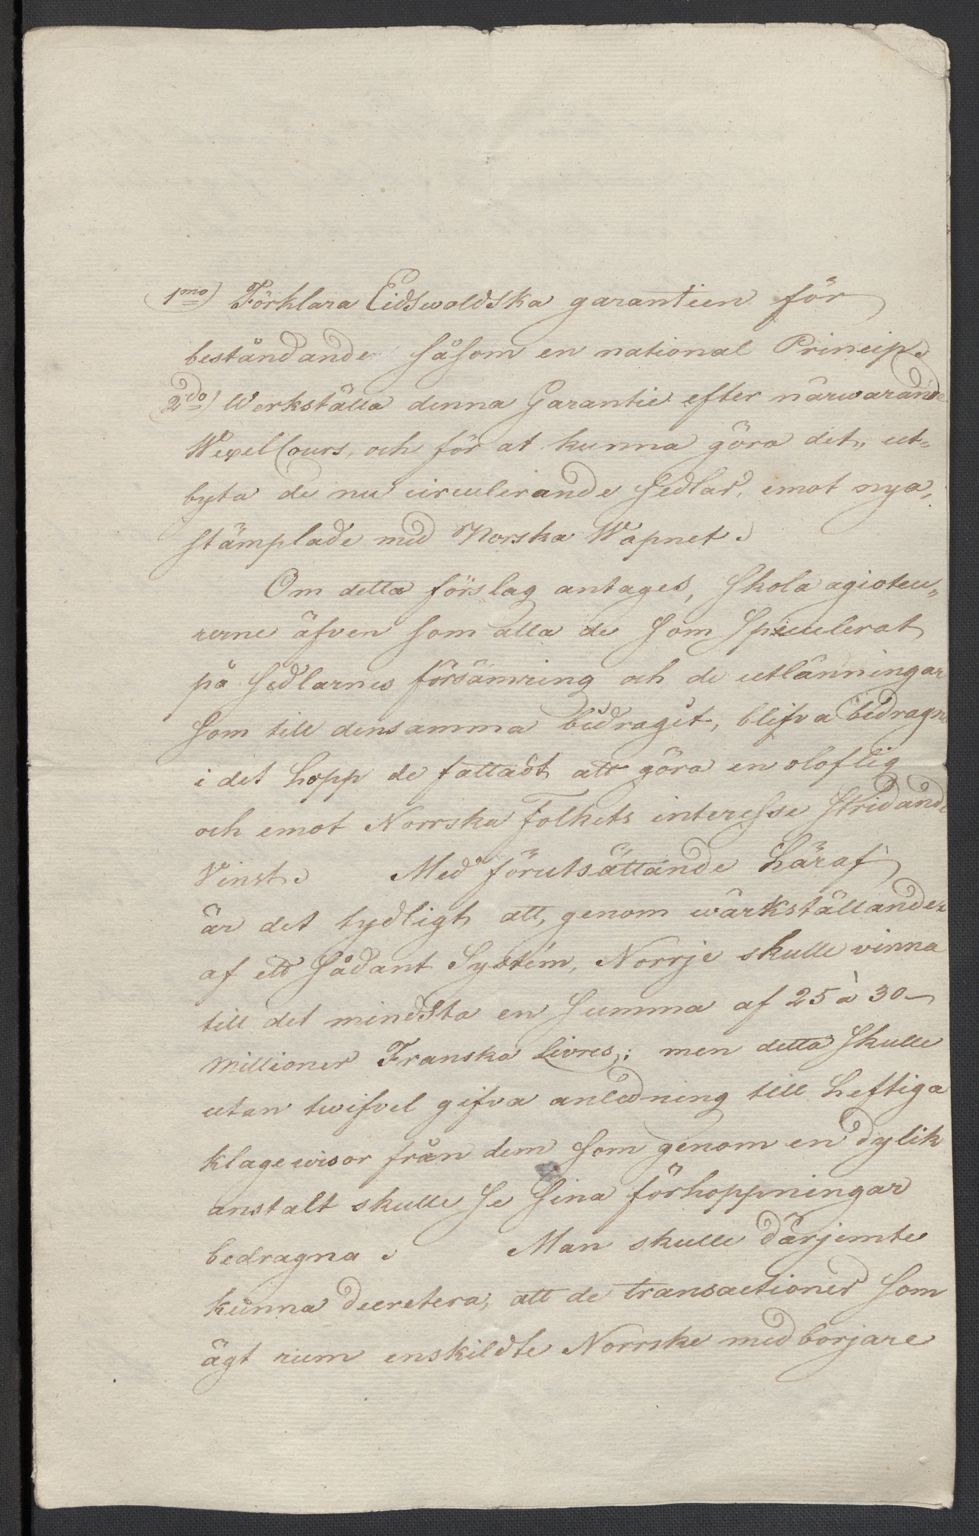 1mo) Förklara Eidswoldska garantien för
beståndande såsom en national Princip.
2do) Werkställa denna Garantie efter närwarande
WexelCours, och för at kunna göra det, ut-
byta de nu circulerande Sedlar, emot nya,
stämplade med Norska Wapnet.
Om detta förslag antages, skola agioteu-
rerne äfven som alla de som speculerat
på Sedlarnes försämring och de utlänningar
som till densamma bidragit, blifva bedragne
i det hopp de fattadt att göra en oloflig
och emot Norrska Folkets interesse stridande
Vinst. Med förutsättande häraf
är det tydligt att, genom wärkställande
af ett sådant System, Norrje skulle vinna
till det mindsta en Summa af 25 à 30
Millioner Franska Livres; men detta skulle
utan twifvel gifva anledning till heftiga
klagewisor från dem som genom en dylik
anstalt skulle se sina förhoppningar
bedragna. Man skulle därjemte
kunna decretera, att de transactioner som
ägt rum enskildte Norrske medborjare